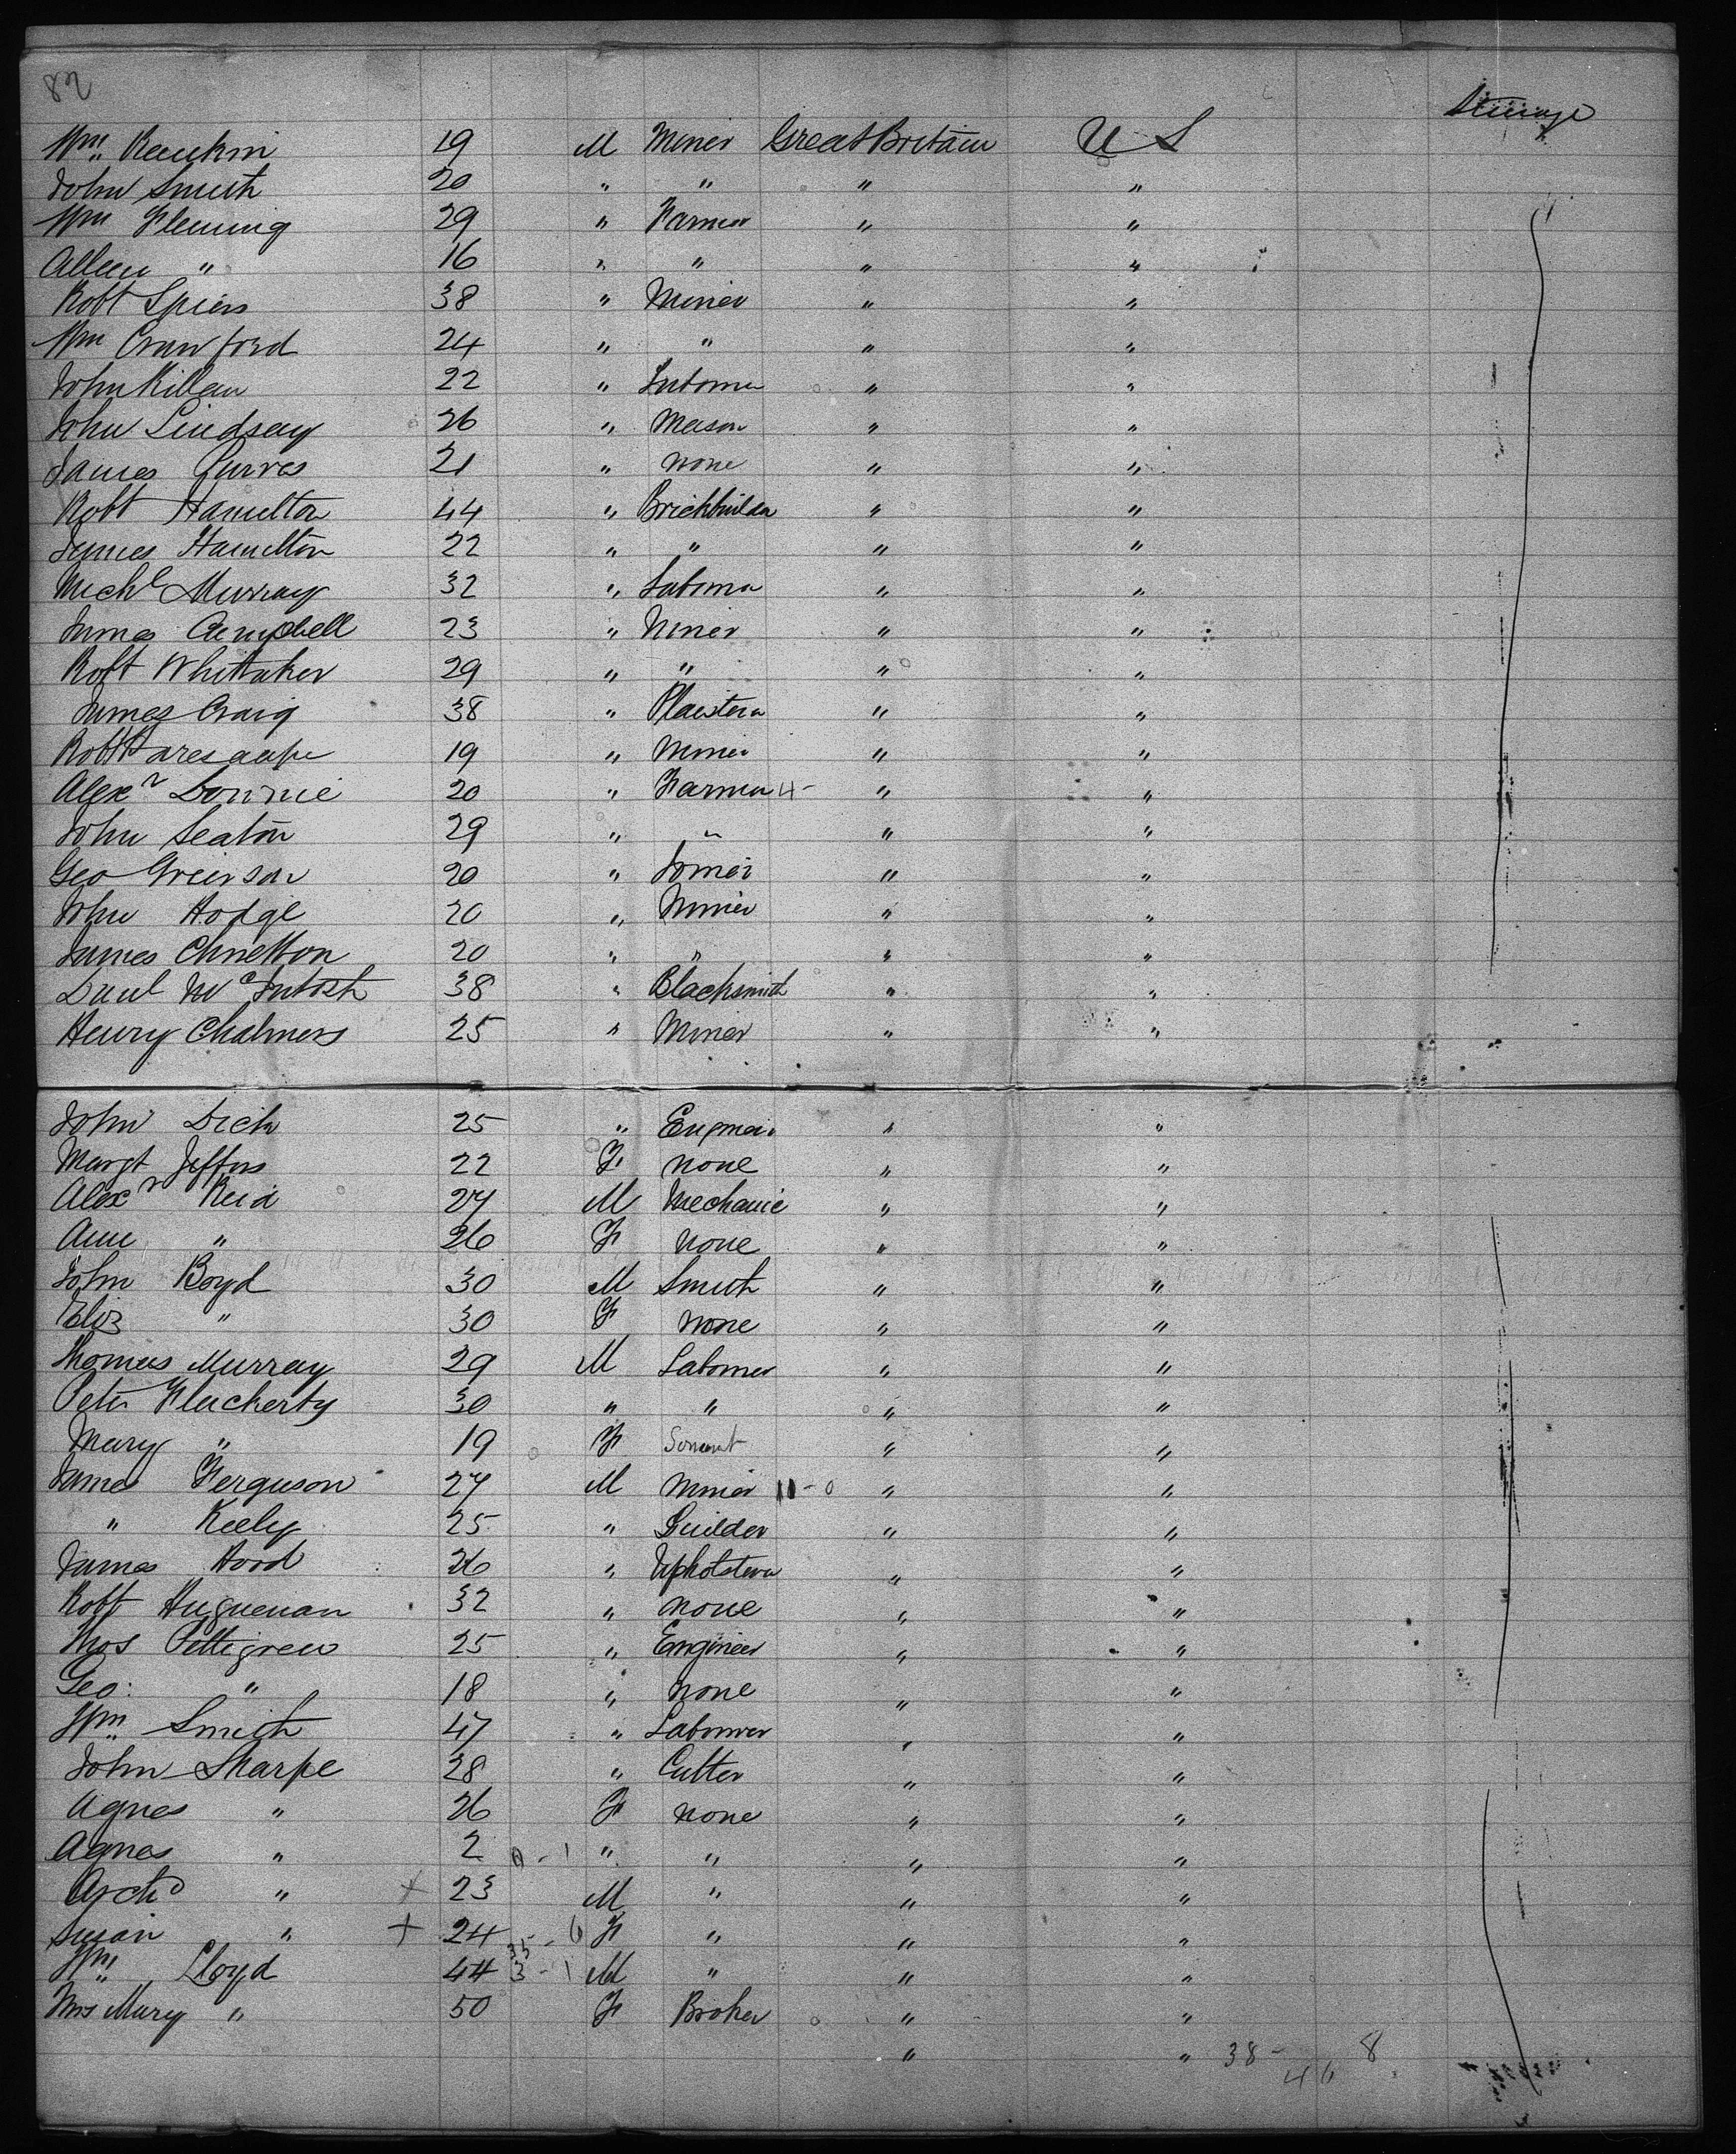 82
Steerage
Wm Rankin 19 M Miner Great Britain U S
John Smith 20 " " " "
Wm Fleming 29 " Farmer " "
Allan " 16 " " " "
Robt Spiers 38 " Miner " "
Wm Crawford 24 " " " "
John Killan 22 " Labourer " "
John Lindsay 26 " Mason " "
James Purves 21 " none " "
Robt Hamilton 44 " Brickbuilder " "
James Hamilton 22 " " " "
Michl Murray 32 " Labourer " "
James Campbell 23 " Miner " "
Robt Whittaker 29 " " " "
James Craig 38 " Plaisterer " "
Robt 19 " Miner " "
Alexr Downie 20 " Farmer 4- " "
John Seaton 29 " " " "
Geo Greirson 20 " Joiner " "
John Hodge 20 " Miner " "
James 20 " " " "
Danl McIntosh 38 " Blacksmith " "
Henry Chalmers 25 " Miner " "
John Dick 25 " Engineer " "
Margt Jeffers 22 F none " "
Alexr Reid 27 M Mechanic " "
Ann " 26 F none " "
John Boyd 30 M Smith " "
Eliz " 30 F none " "
Thomas Murray 29 M Labourer " "
Peter Flucherty 30 " " " "
Mary " 19 F Servant " "
James Ferguson 27 M Miner 11-0 " "
" Keely 25 " Builder " "
James Hood 26 " Upholsterer " "
Robt Huguenan 32 " none " "
Thos Pettigrew 25 " Engineer " "
Geo: " 18 " none " "
Wm Smith 47 " Labourer " "
John Sharpe 28 " Cutter " "
Agnes " 26 F none " "
Agnes " 2 0-1 " " " "
Archd " + 23 M " " "
Susan " + 24 35-6 F " " "
Wm Lloyd 44 3-1 M " " "
Mrs Mary " 50 F Broker " "
" " 38- 8
46